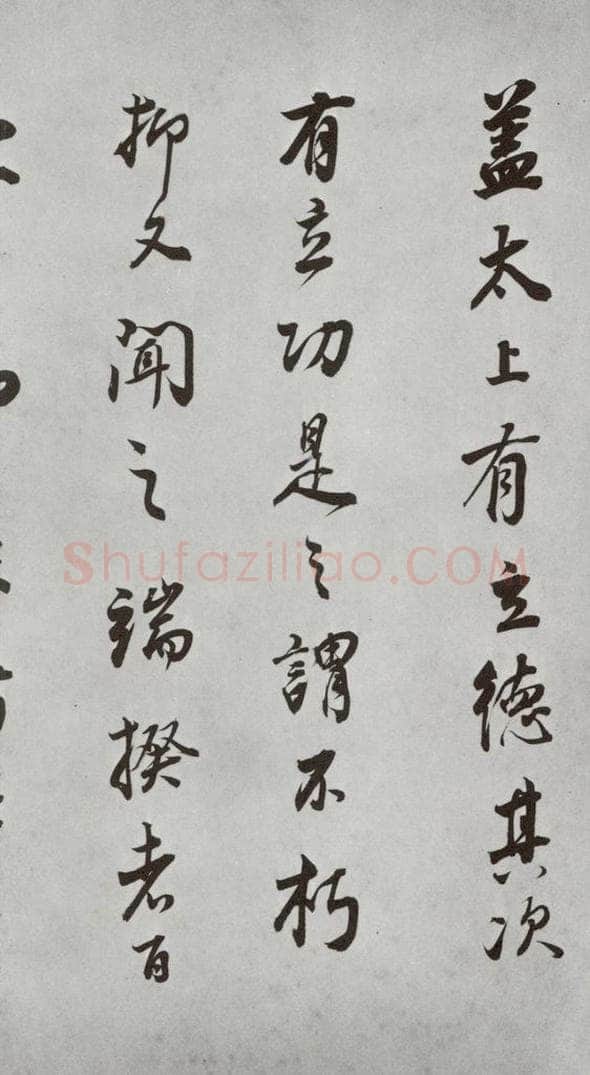 盖太上有立德其次
有立功是之謂不朽
抑又聞之端揆者百
Shufaziliao.COM